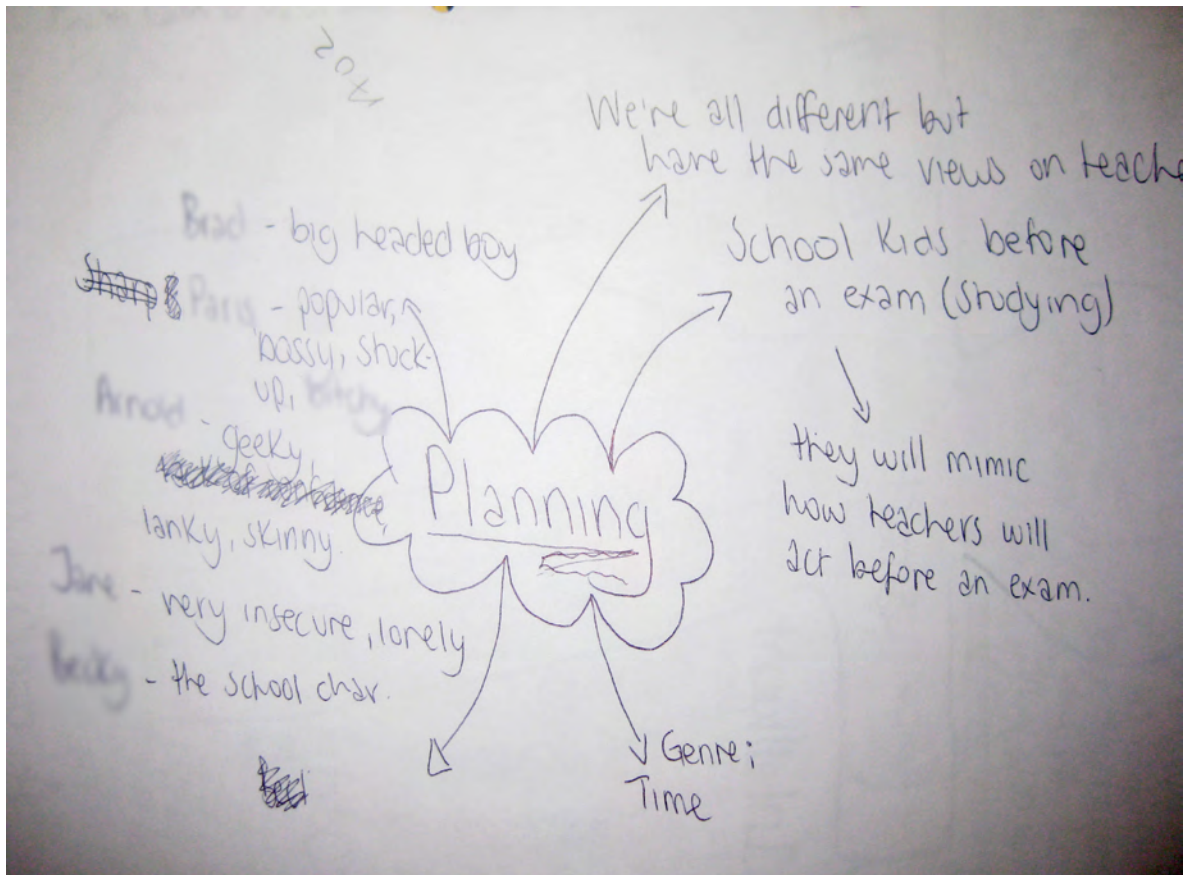 We're all different but
have the same views on teache
School Kids before
an exam (studying)
they will mimic
how teachers will
act before an exam.
Brad - big headed boy
Sharp Paris - popular,
bossy, stuck-
up, bitchy
Arnold - geeky,
lanky, skinny.
Jane - very insecure, lonely
Becky - the school char.
Planning
Genre;
Time